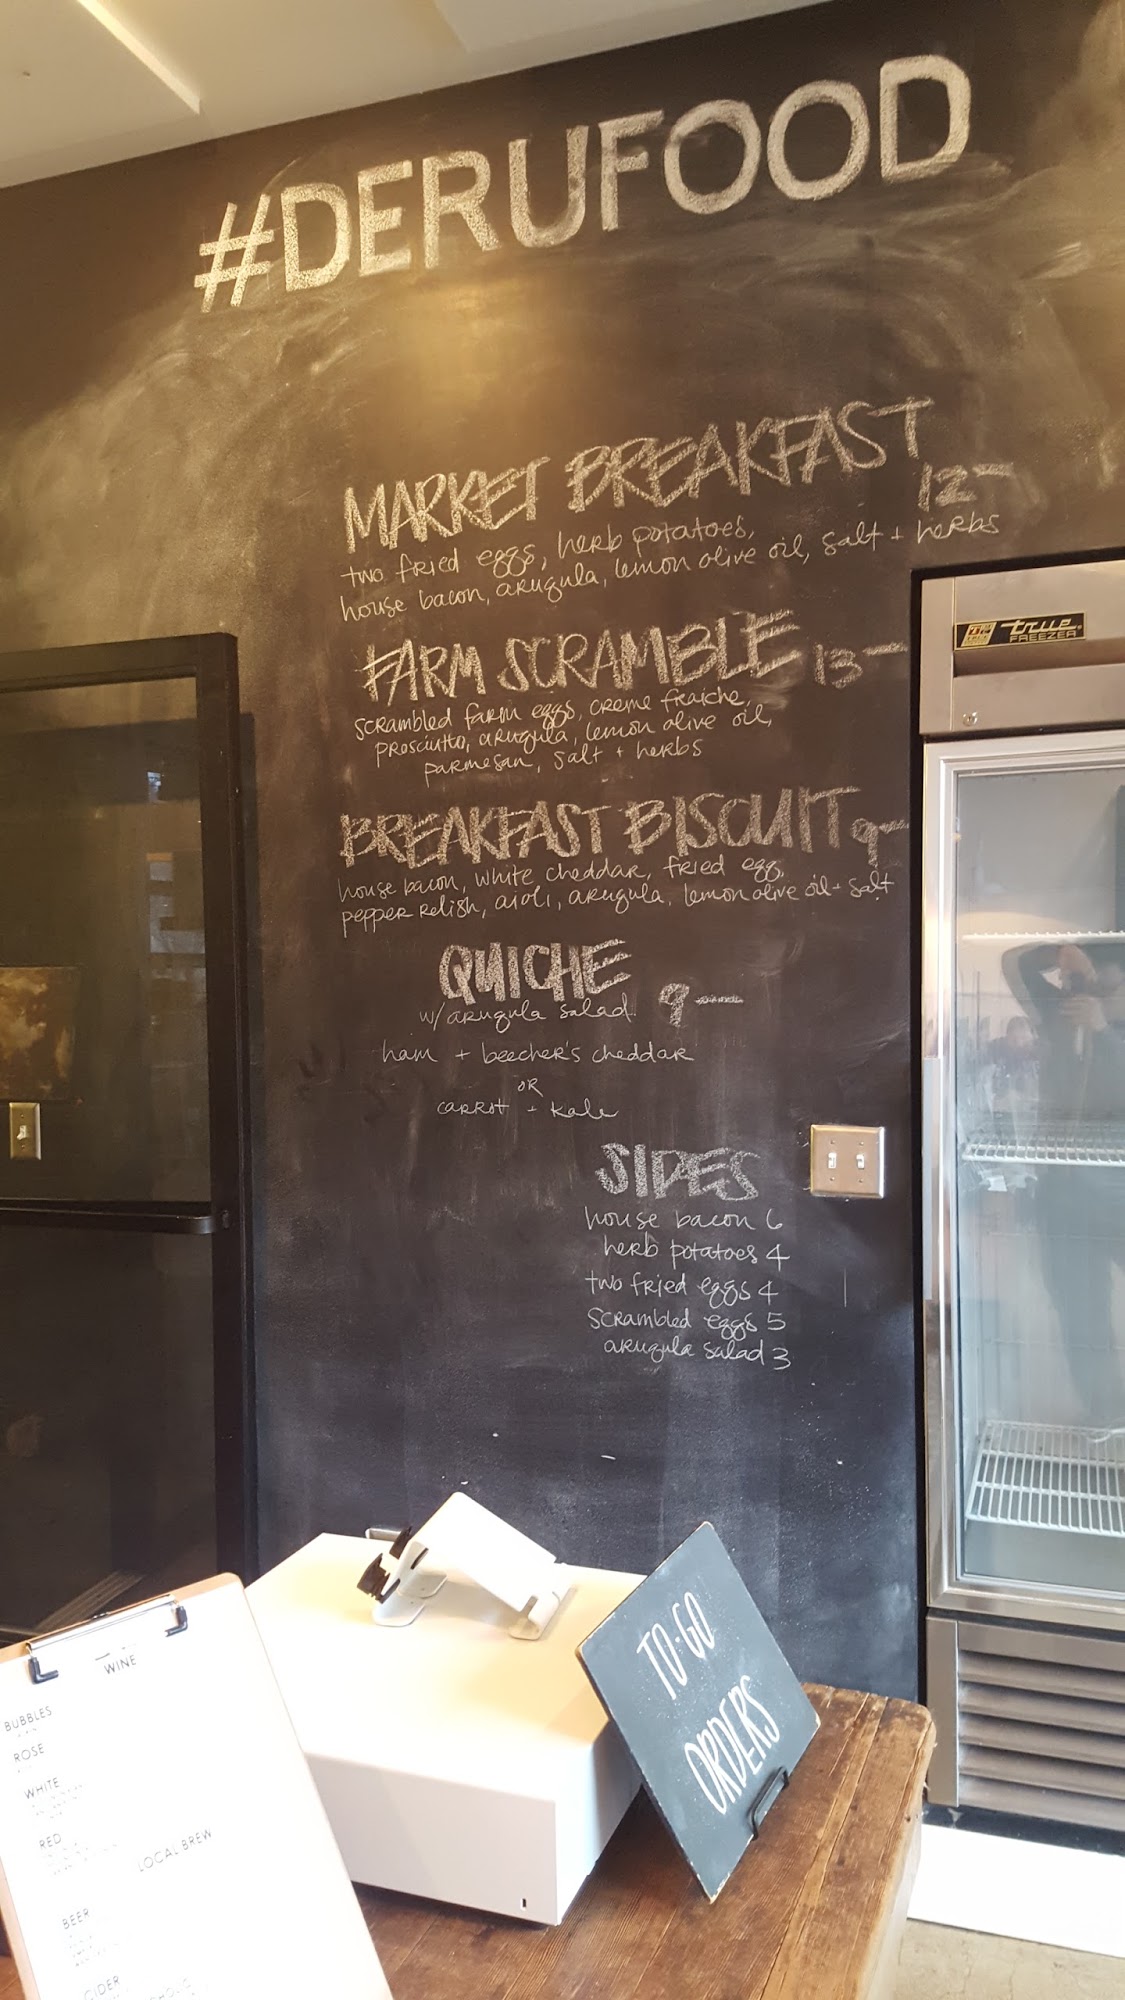 #DERUFOOD
MARKET BREAKFAST
12-
two fried eggs, herb potatoes,
house bacon, arugula, lemon olive oil, salt + herbs
FARM SCRAMBLE 13-
scrambled farm eggs, creme fraiche,
prosciutto, arugula, lemon olive oil,
parmesan, salt + herbs
BREAKFAST BISCUIT 9-
house bacon, white cheddar, fried egg,
pepper relish, aioli, arugula, lemon olive oil + salt
QUICHE
w/ arugula salad 9-
ham + beecher's cheddar
OR
carrot + kale
SIDES
house bacon 6
herb potatoes 4
two fried eggs 4
scrambled eggs 5
arugula salad 3
true
FREEZER
TO-GO
ORDERS
WINE
BUBBLES
ROSE
WHITE
RED
LOCAL BREW
BEER
CIDER